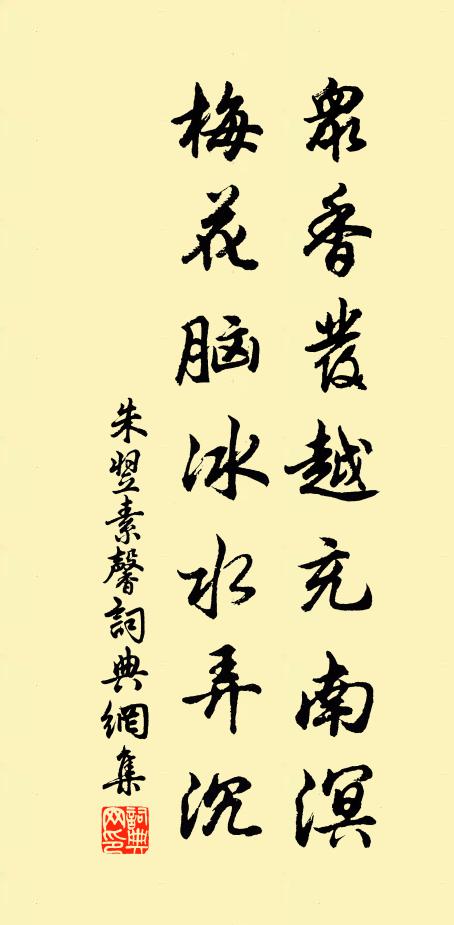 眾香發越充南溟
梅花脑冰水弄沉
朱翌素馨詞典網集
詞典网印